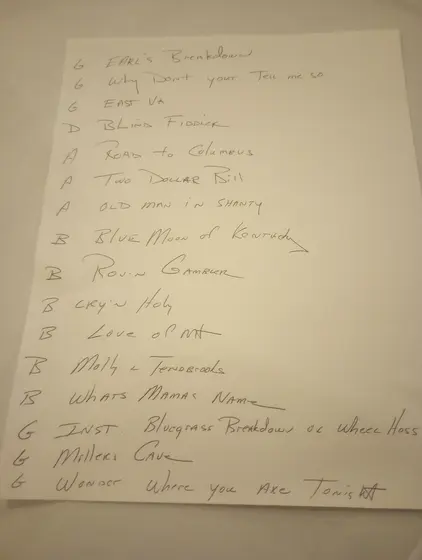 G EARL'S Breakdown
G Why Don't your Tell me so
G EAST VA
D BLIND FIDDLER
A ROAD to Columbus
A Two DOLLAR Bill
A OLD MAN IN SHANTY
B BLUE MOON of KENTUCKY
B ROVIN GAMBLER
B CRY'N Holy
B LOVE OF
B Molly & TENBROOKS
B WHATS MAMAS NAME
G INST Bluegrass Breakdown OR Wheel Hoss
G Millers CAVE
G WONDER Where you ARE TONIGHT